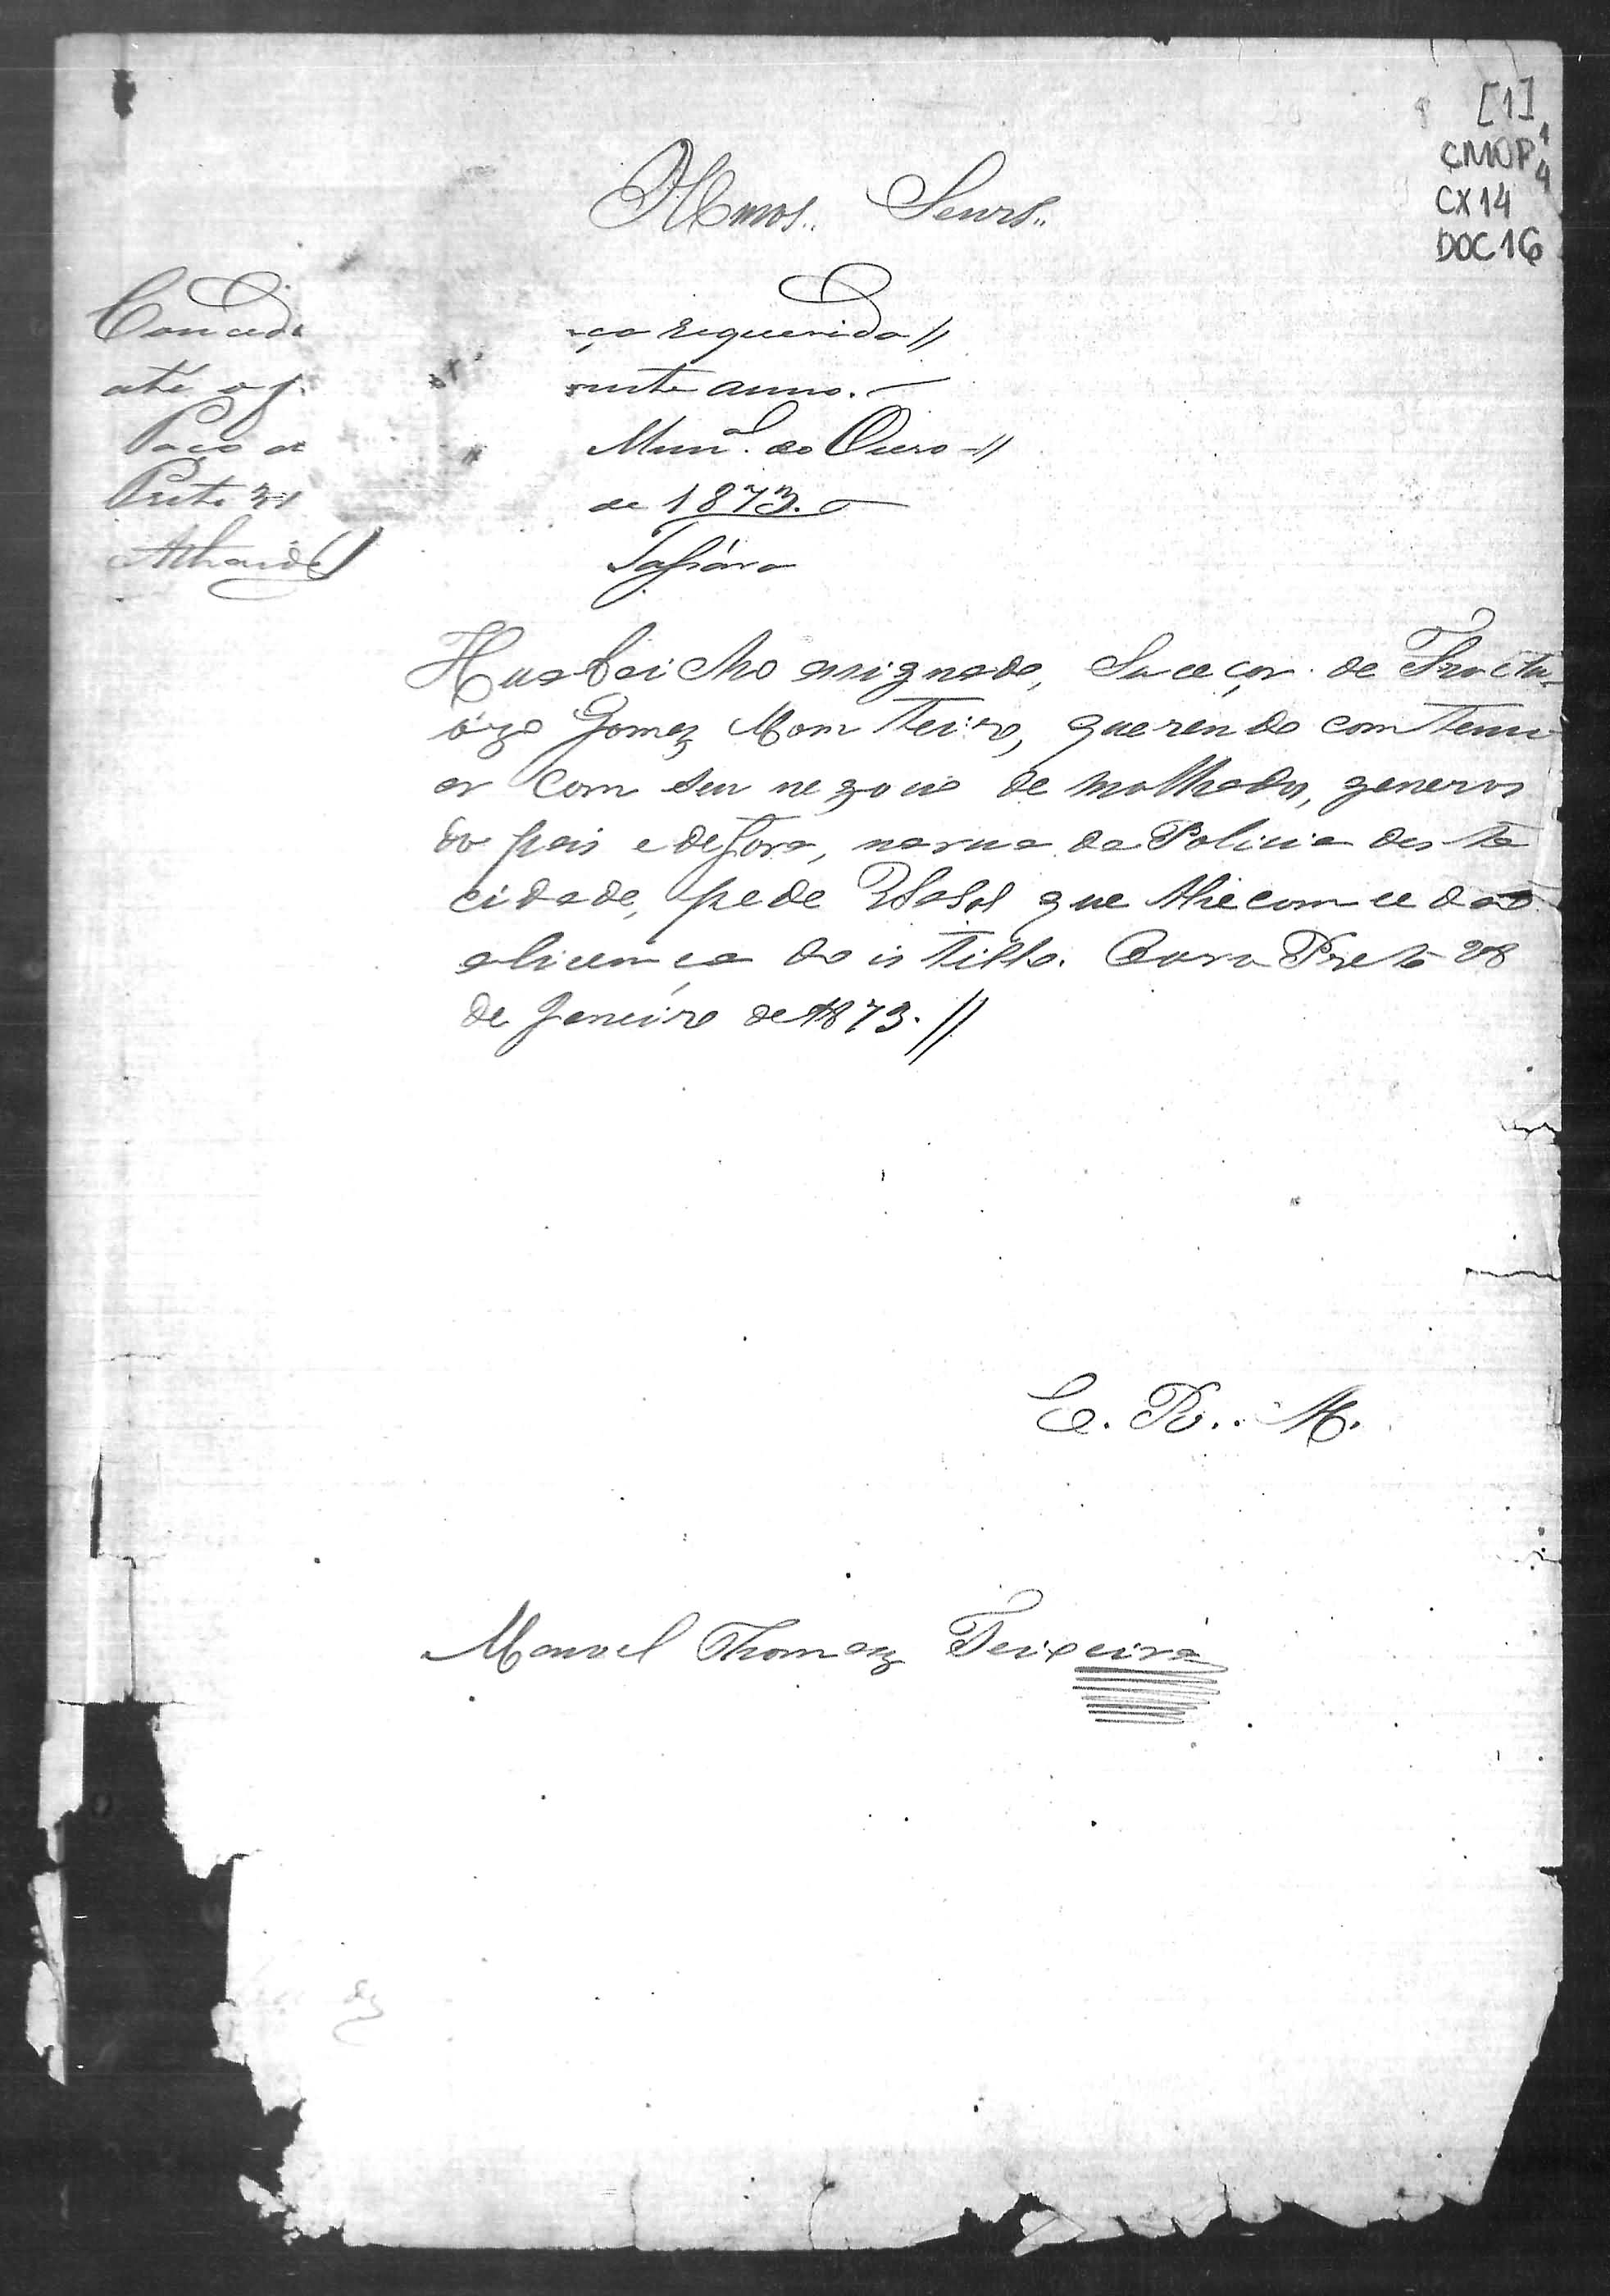 [1]
CMOP
CX 14
DOC 16
Illmos.. Senrs..
Conced ça requerida //
até o f rente anno. —
Paço da Munal. do Ouro //
Preto 31 de 1873.
Athaide
O abaicho asignado, Suceçor de Fructu-
ózo Gomez Mom Teiro, querendo comtenu
ar com seu negocio de molhados, generos
do pais e de fora, na rua da Policia desta
cidade, pede VSasas que lhe comceda
a licemça do istillo. Ouro Preto 28
de Janeiro de 1873. //
E. R.. M.
Manoel Thomaz Teixeira